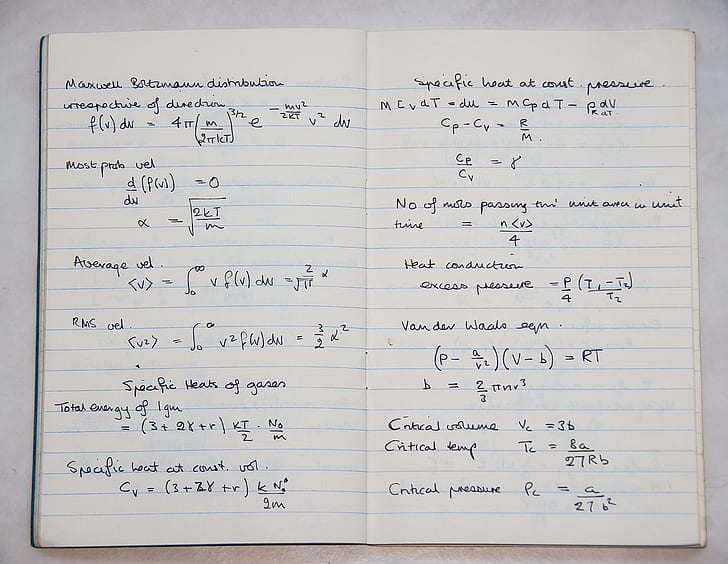 Maxwell Boltzmann distribution
irrespective of direction
f(v) dv = 4π (m/2πkT)^3/2 e^-mv²/2kT v² dv
Most prob vel
d/dv (f(v)) = 0
α = √(2kT/m)
Average vel.
<v> = ∫₀^∞ v f(v) dv = 2/√π α
RMS vel.
<v²> = ∫₀^∞ v² f(v) dv = 3/2 α²
Specific Heats of gases
Total energy of 1gm
= (3 + 2γ + r) kT/2 . N₀/m
Specific heat at const. vol.
Cv = (3 + 2γ + r) k N₀/2m
Specific heat at const. pressure.
m Cv dT = du = m Cp dT - p dV
R dT
Cp - Cv = R/M.
Cp/Cv = γ
No of mols passing thro' unit area in unit
time = n<v>/4
Heat conduction
excess pressure = P/4 (T₁ - T₂)/T₂
Van der Waals eqn.
(P - a/v²)(V - b) = RT
b = 2/3 πnr³
Critical volume Vc = 3b
Critical temp Tc = 8a/27Rb
Critical pressure Pc = a/27b²